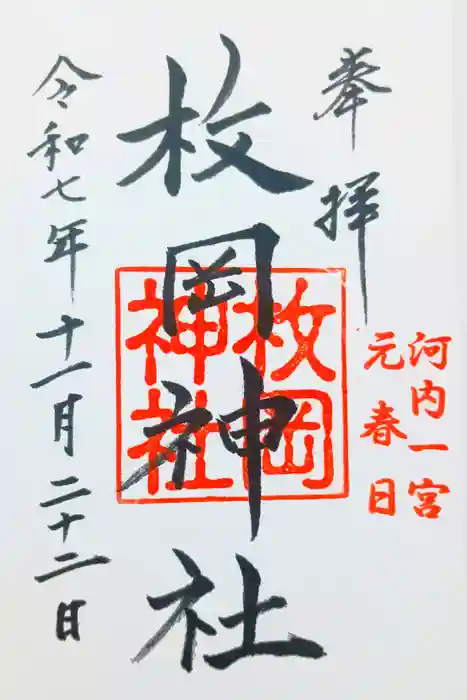 奉拝
河内一宮
元春日
枚岡神社
枚岡
神社
令和七年十一月二十二日